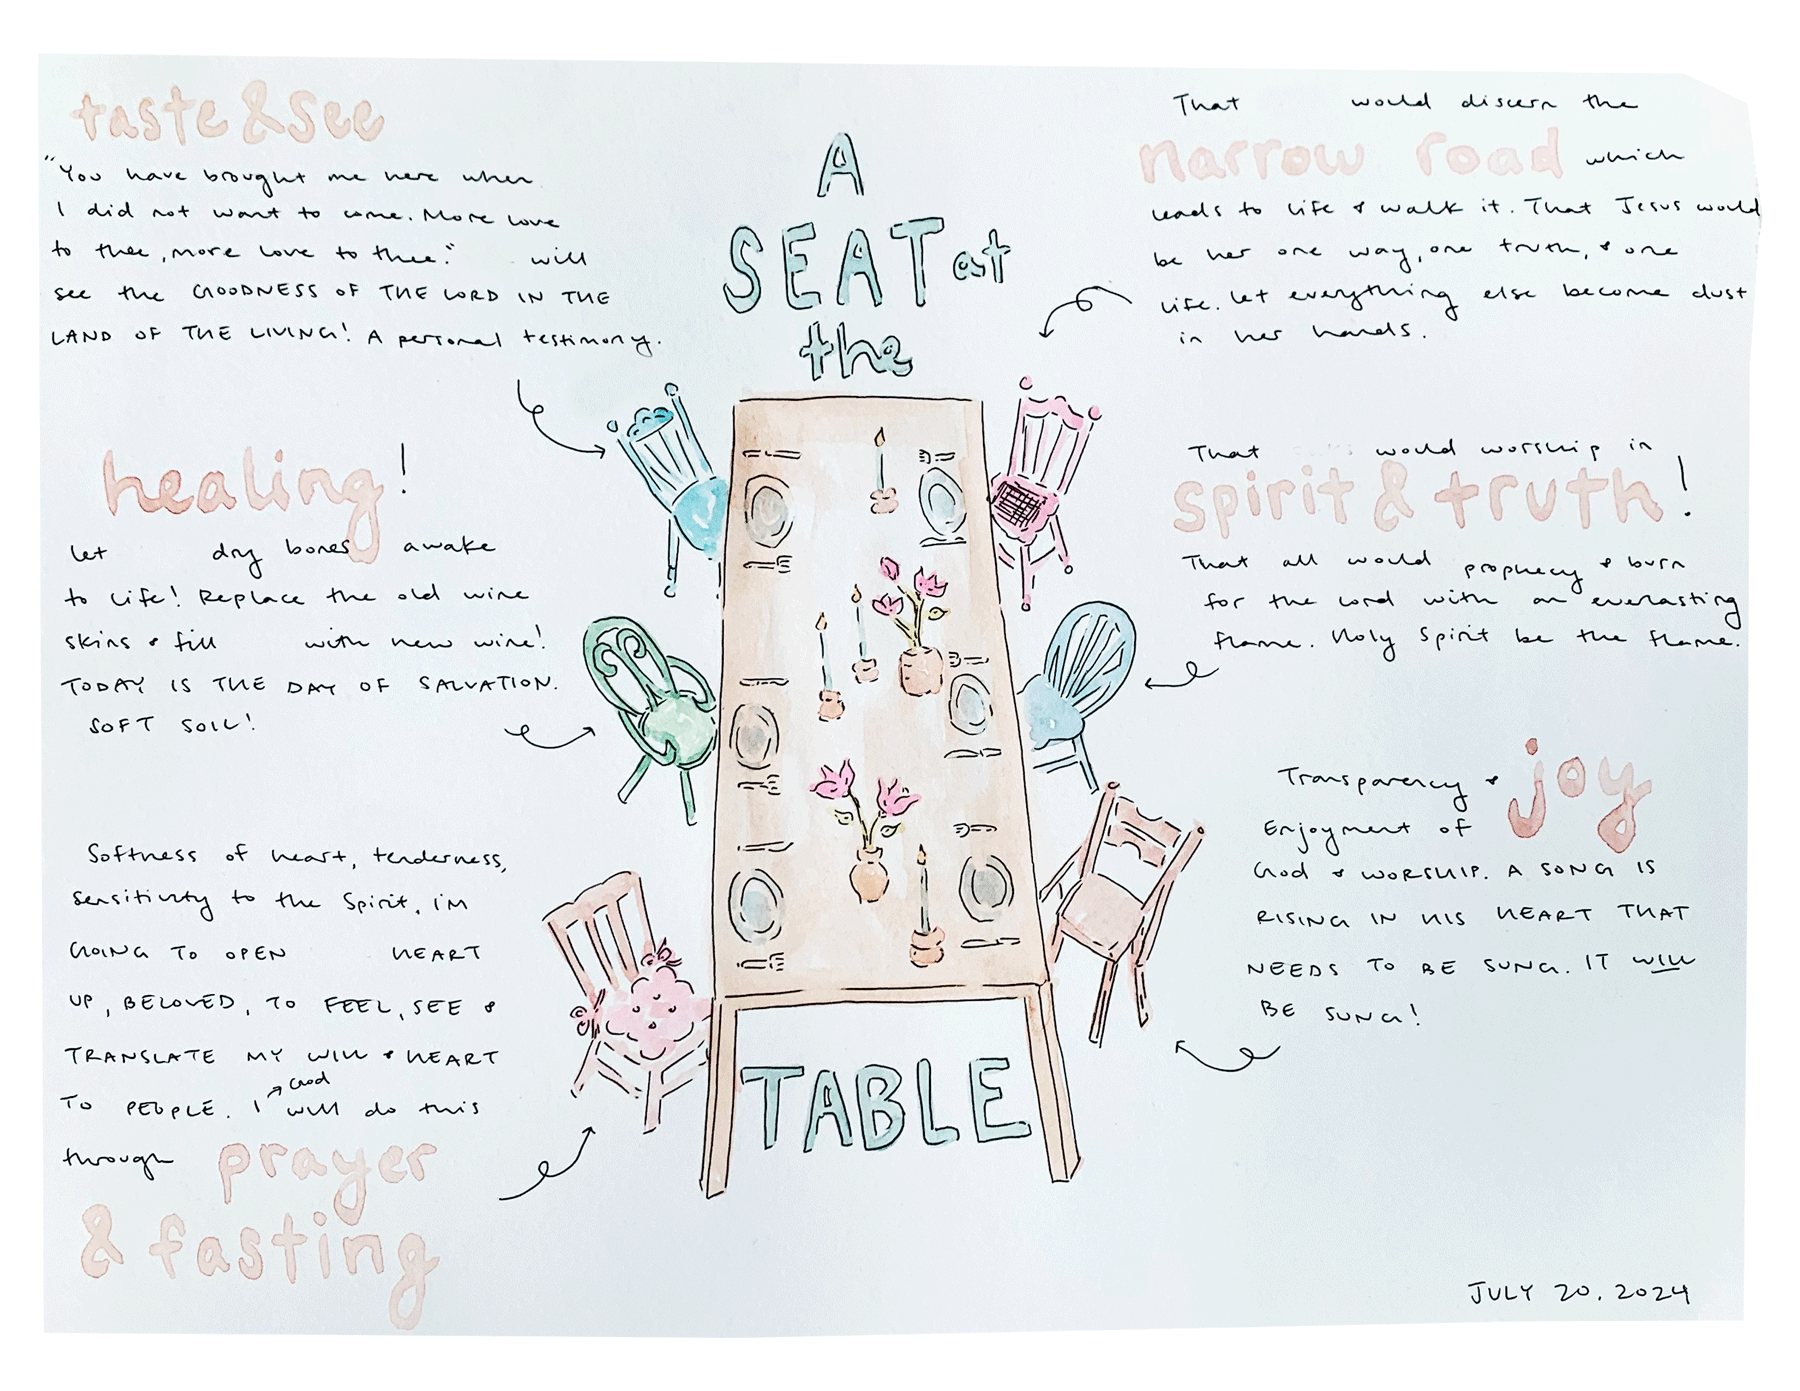 taste & see
"You have brought me here when
I did not want to come. More love
to thee, more love to thee." will
see the GOODNESS OF THE LORD IN THE
LAND OF THE LIVING! A personal testimony.
healing!
Let dry bones awake
to life! Replace the old wine
skins & fill with new wine!
TODAY IS THE DAY OF SALVATION.
SOFT SOIL!
Softness of heart, tenderness,
sensitivity to the Spirit. I'M
GOING TO OPEN HEART
UP, BELOVED, TO FEEL, SEE &
TRANSLATE MY WILL & HEART
God
TO PEOPLE. I will do this
through prayer
& fasting
A
SEAT at
the
TABLE
That would discern the
narrow road which
leads to life & walk it. That Jesus would
be her one way, one truth, & one
life. Let everything else become dust
in her hands.
That would worship in
spirit & truth!
That all would prophecy & burn
for the Lord with an everlasting
flame. Holy Spirit be the flame.
Transparency & joy
Enjoyment of
God & WORSHIP. A SONG IS
RISING IN HIS HEART THAT
NEEDS TO BE SUNG. IT WILL
BE SUNG!
JULY 20, 2024